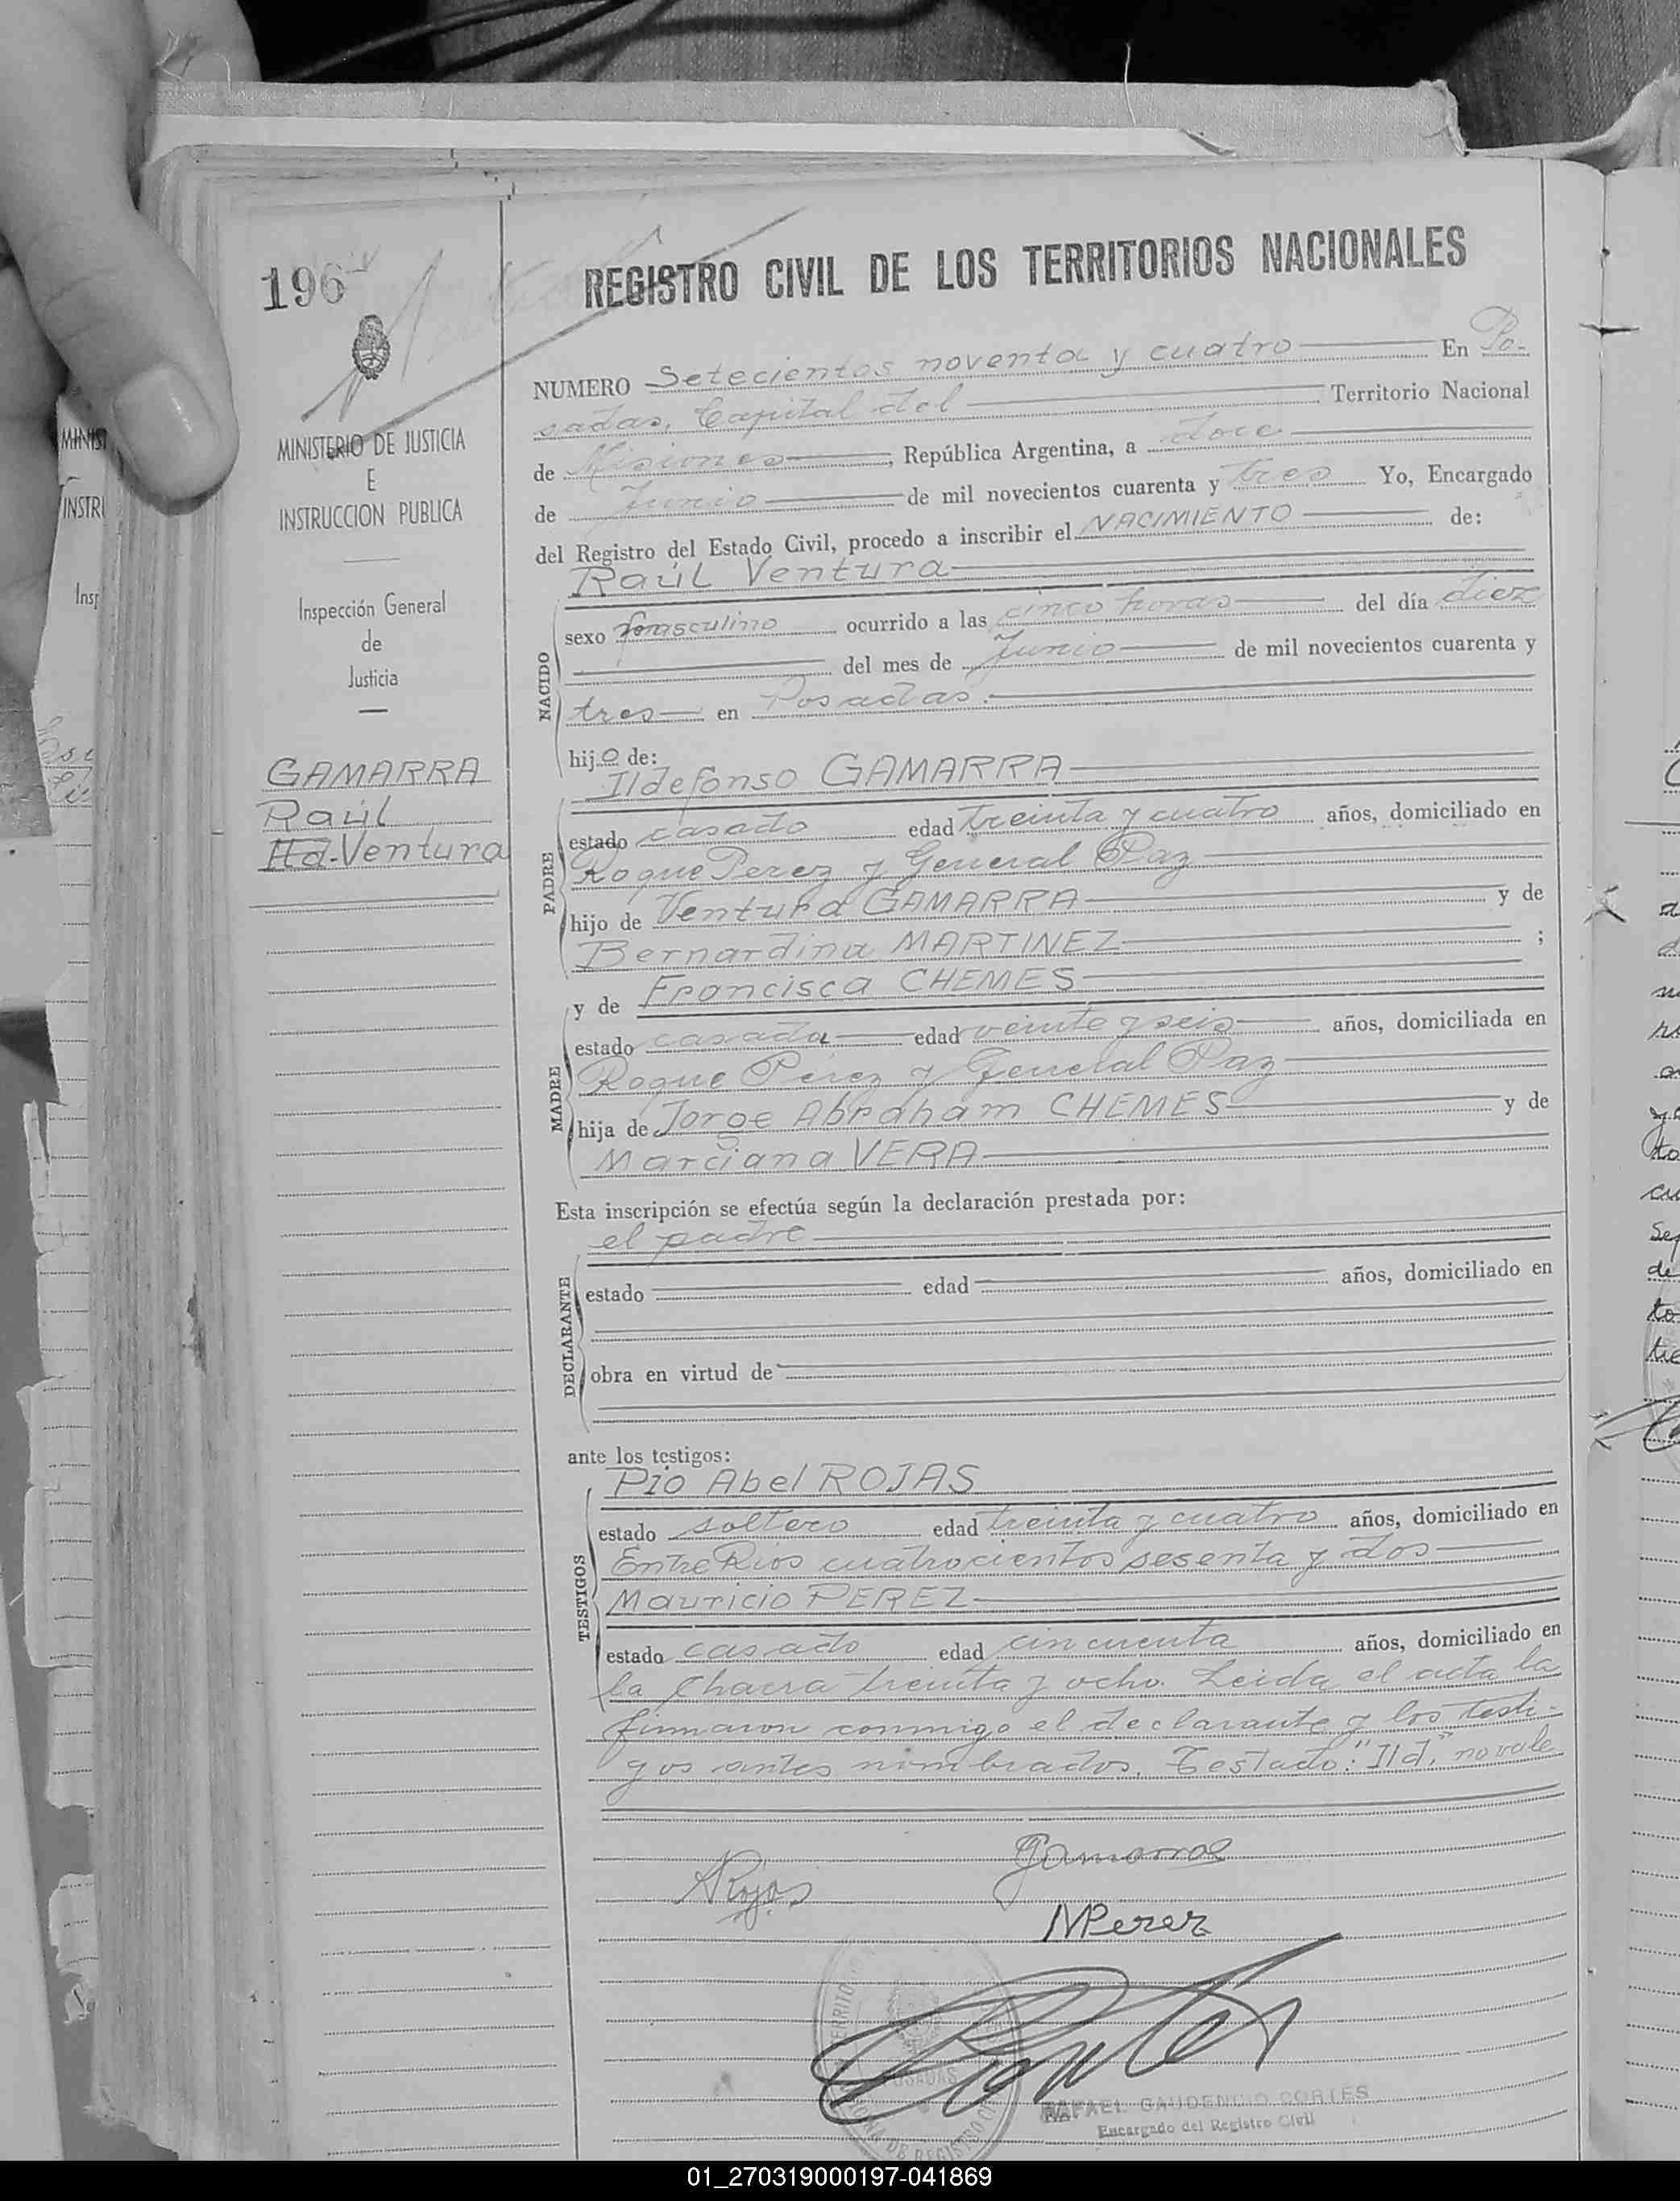 196
REGISTRO CIVIL DE LOS TERRITORIOS NACIONALES
MINISTERIO DE JUSTICIA
E
INSTRUCCION PUBLICA
Inspección General
de
Justicia
GAMARRA
Raúl
Ild-Ventura
NUMERO Setecientos noventa y cuatro En Po-
sadas, Capital del Territorio Nacional
de Misiones, República Argentina, a doce
de Junio de mil novecientos cuarenta y tres Yo, Encargado
del Registro del Estado Civil, procedo a inscribir el NACIMIENTO de:
Raúl Ventura
NACIDO
sexo masculino ocurrido a las cinco horas del día diez
del mes de Junio de mil novecientos cuarenta y
tres en Posadas.
hijo de:
Ildefonso GAMARRA
PADRE
estado casado edad treinta y cuatro años, domiciliado en
Roque Perez y General Paz
hijo de Ventura GAMARRA y de
Bernardina MARTINEZ ;
y de Francisca CHEMES
MADRE
estado casada edad veinte y seis años, domiciliada en
Roque Pérez y General Paz
hija de Jorge Abraham CHEMES y de
Marciana VERA
Esta inscripción se efectúa según la declaración prestada por:
el padre
DECLARANTE
estado edad años, domiciliado en
obra en virtud de
ante los testigos:
Pio Abel ROJAS
TESTIGOS
estado soltero edad treinta y cuatro años, domiciliado en
Entre Rios cuatrocientos sesenta y dos
Mauricio PEREZ
estado casado edad cincuenta años, domiciliado en
la Chacra treinta y ocho. Leida el acta la
firmaron conmigo el declarante y los testi-
gos antes nombrados. Testado: "Ild." no vale
Gamarra
ARojas
MPerez
POSADAS
RAFAEL GAUDENCIO CORTES
Encargado del Registro Civil
01_270319000197-041869